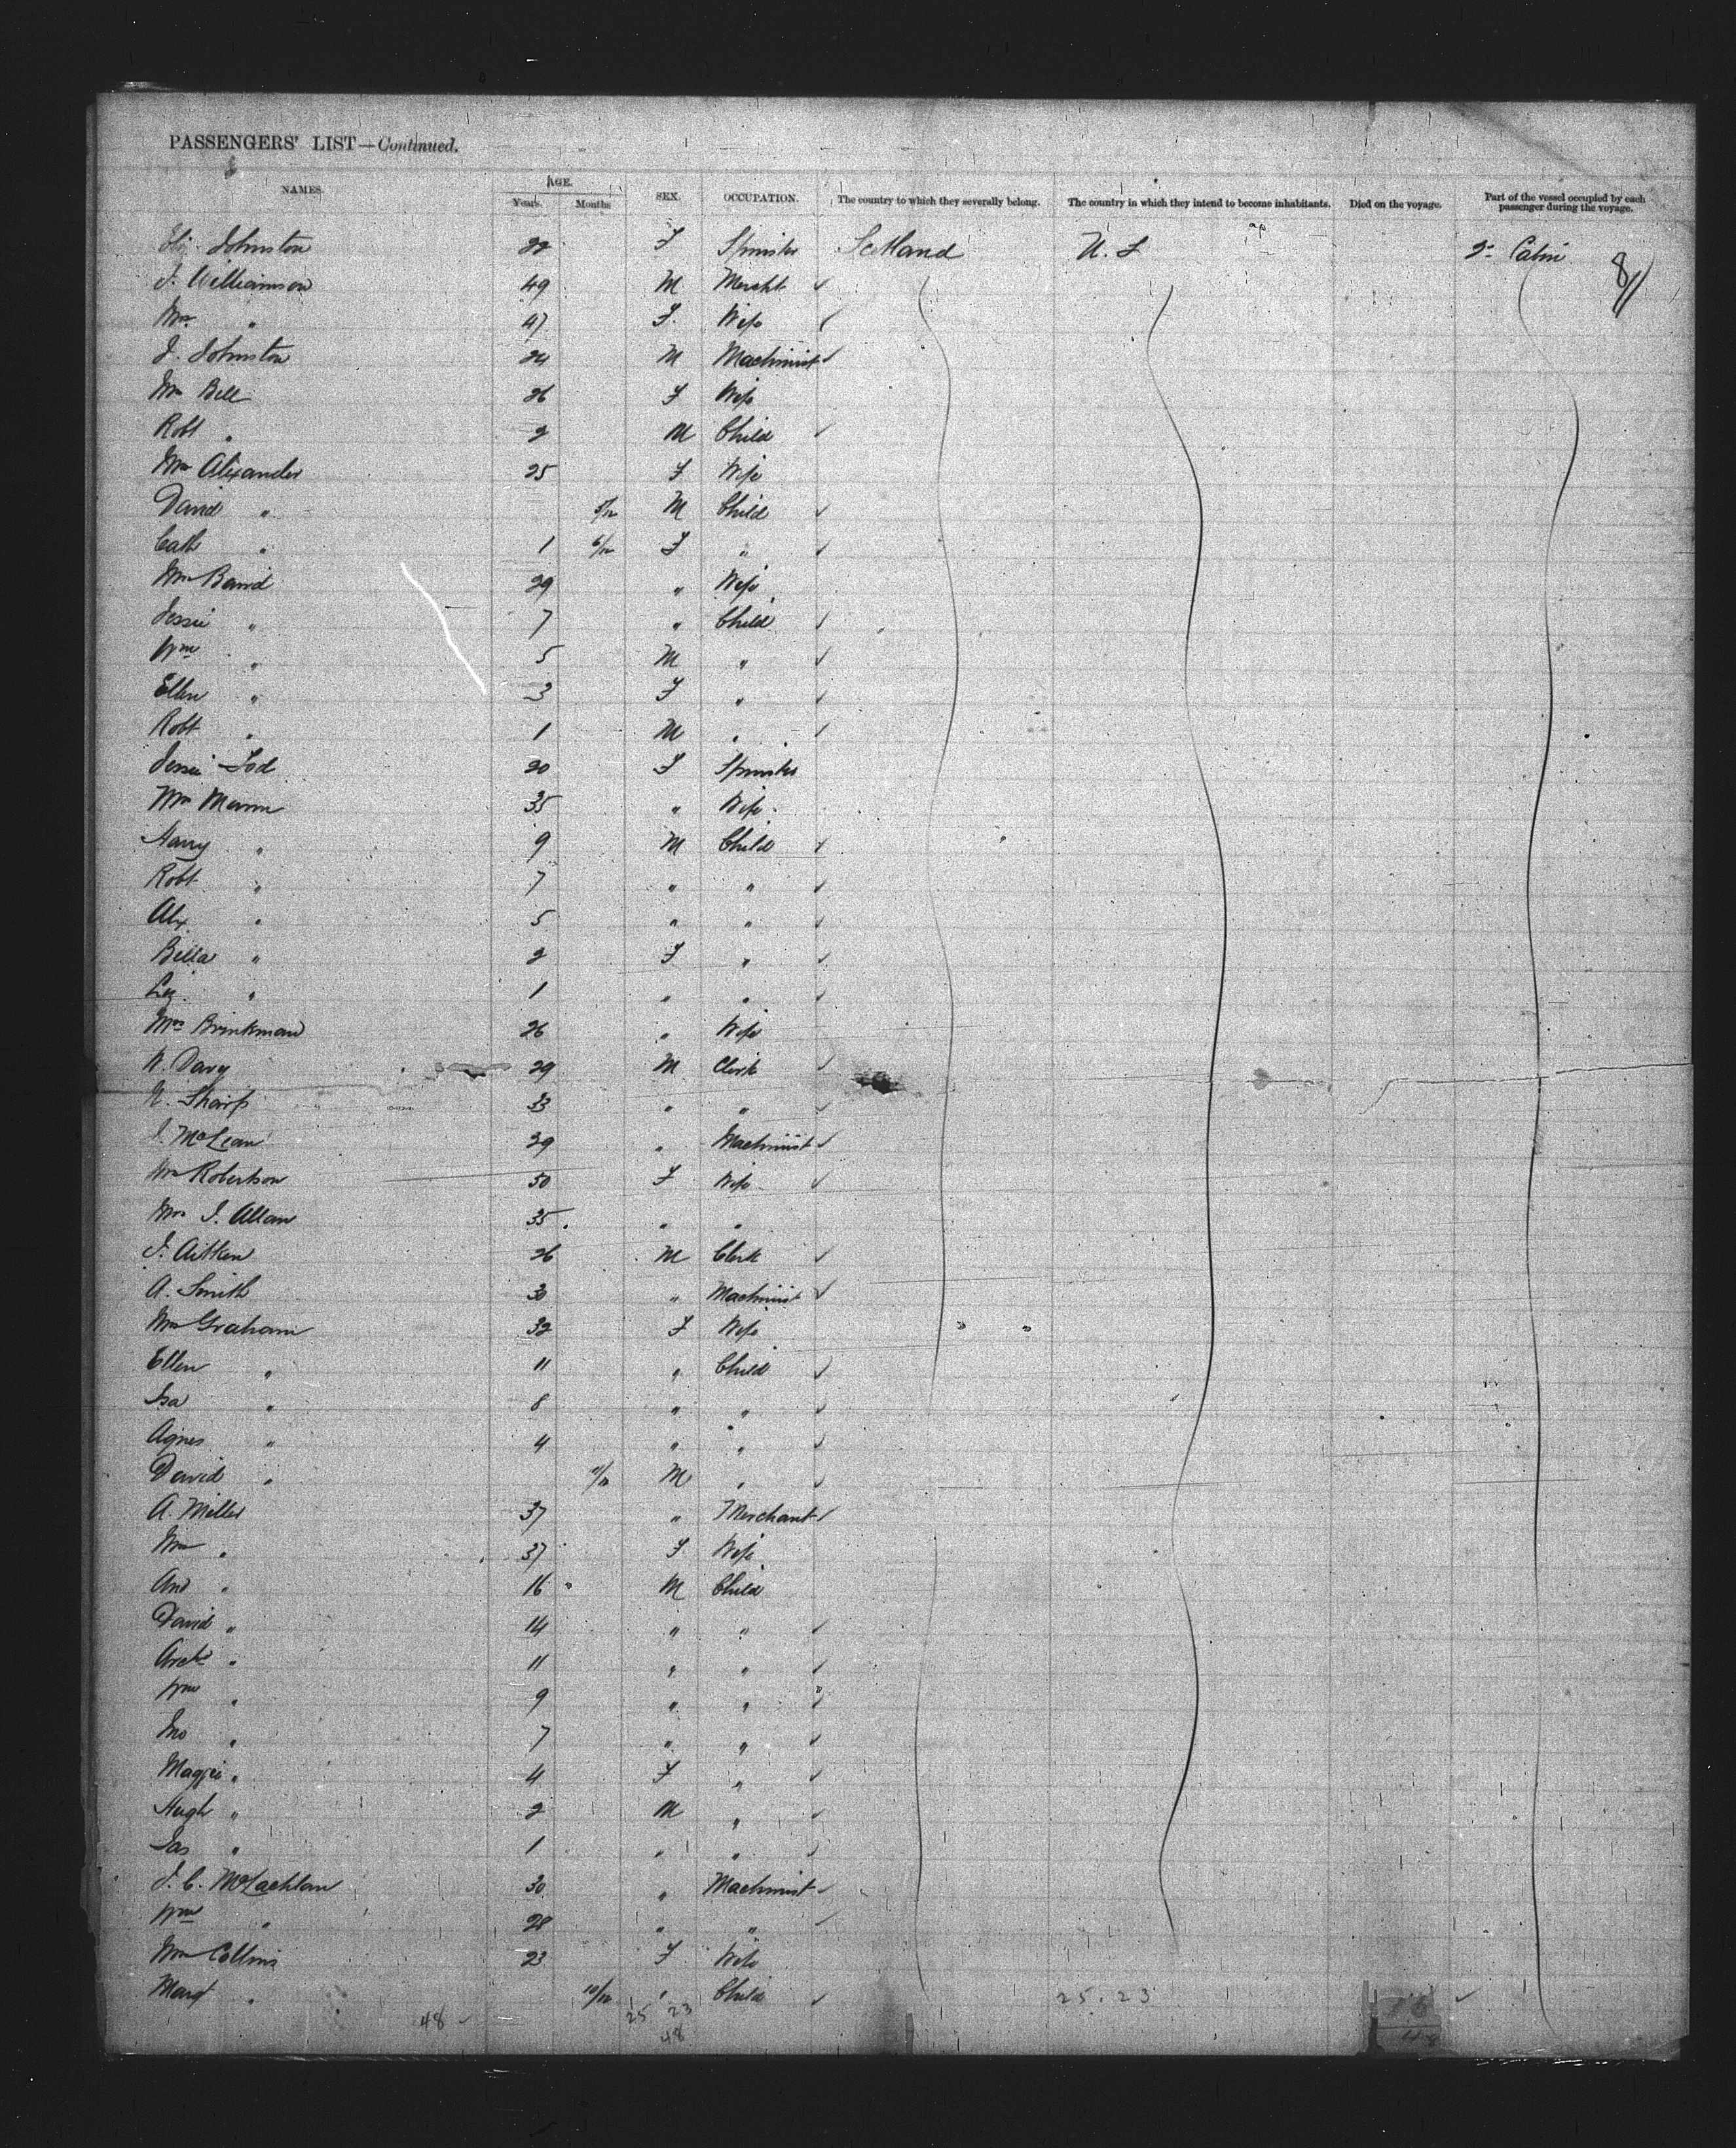 PASSENGERS' LIST—Continued.
NAMES. AGE. Years. Months SEX. OCCUPATION. The country to which they severally belong. The country in which they intend to become inhabitants. Died on the voyage. Part of the vessel occupied by each passenger during the voyage.
Eliz. Johnston 22 F Spinster Scotland U.S 2d Cabin 81
J. Williamson 49 M Mercht
Mrs " 47 F. Wife
J. Johnston 24 M Machinist
Mrs Bell 26 F Wife
Robt " 2 M Child
Mrs Alexander 25 F Wife
David " M Child
Cath " 1 6/12 F "
Mrs Baird 29 " Wife
Jessie " 7 " Child
Wm " 5 M "
Ellen " 3 F "
Robt " 1 M "
Jessie Tod 20 F Spinster
Mrs Mann 35 " Wife
Harry " 9 M Child
Robt " 7 " "
Alex " 5 " "
Bella " 2 F "
" 1 " "
Mrs Brinkman 26 " Wife
W. Davy 29 M Clerk
Sharp 33 " "
J. McLean 29 " Machinist
Mrs Robertson 50 F Wife
Mrs J. Allan 35 " "
J. Aitken 26 M Clerk
A. Smith 30 " Machinist
Mrs Graham 32 F Wife
Ellen " 11 " Child
Isa " 8 " "
Agnes " 4 " "
David " M "
A. Miller 37 " Merchant
Mrs " 37 F Wife
And " 16 M Child
David " 14 " "
Archd " 11 " "
Wm " 9 " "
Jno " 7 " "
Maggie " 4 F "
Hugh " 2 M "
Jas " 1 " "
J. C. McLachlan 30 " Machinist
Wm " 28 " "
Mrs Collins 23 F Wife
Margt " 10/12 " Child
48 25 23 25.23
48